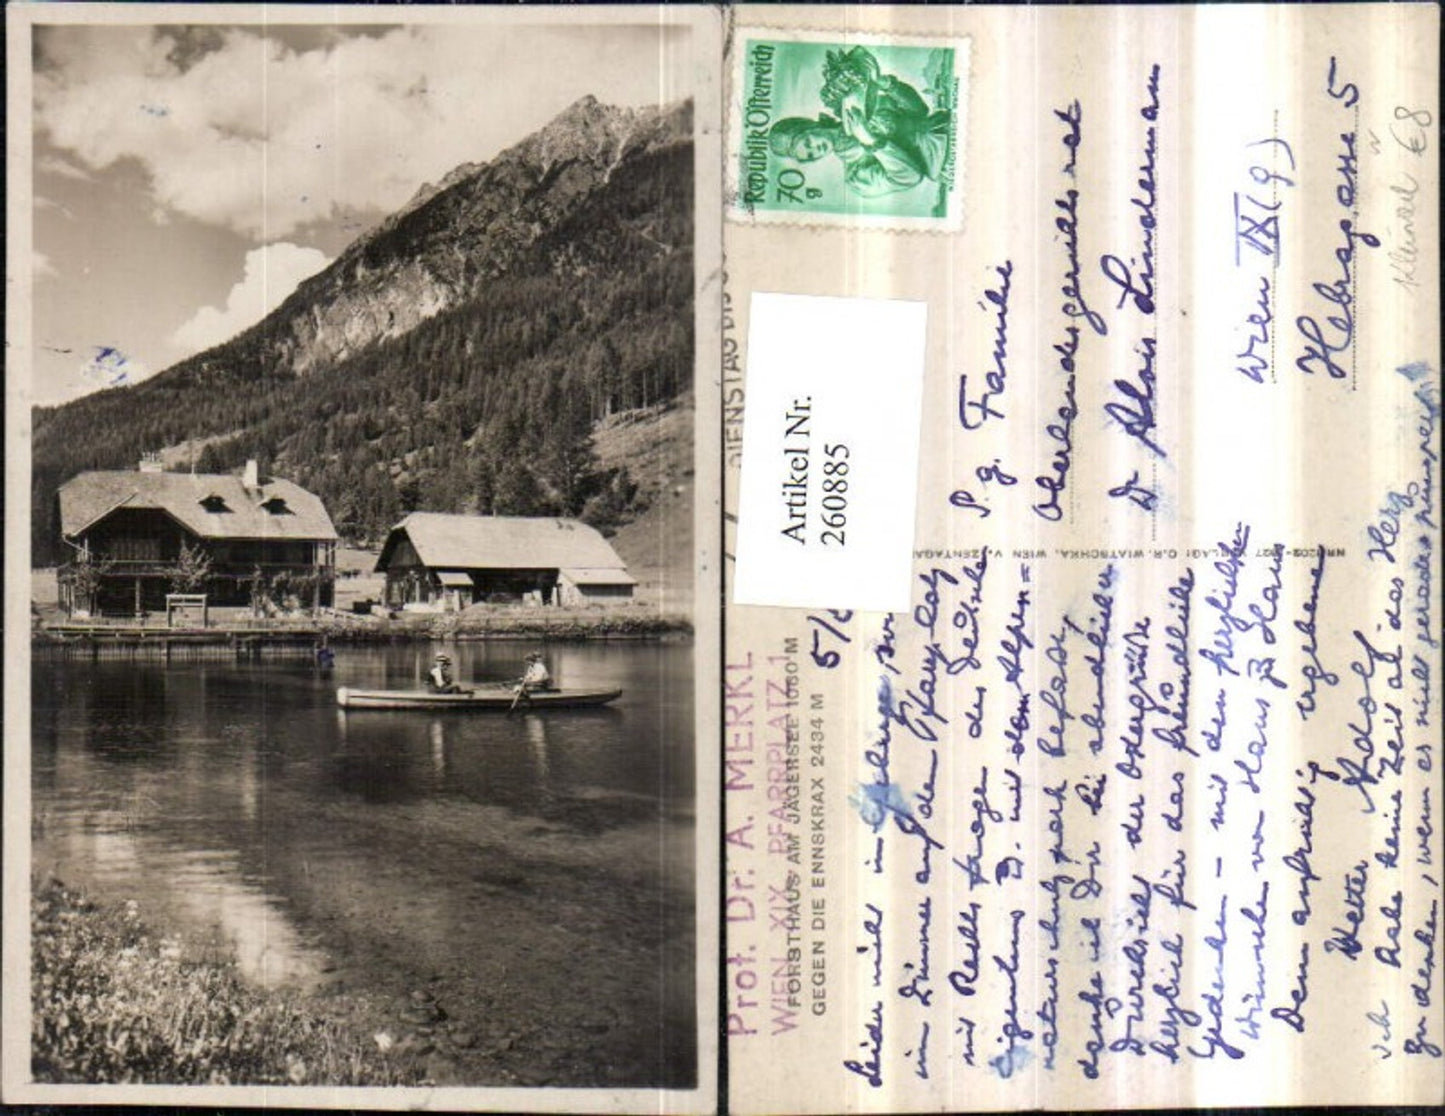 Republik Österreich
70
g
NIEDERÖSTERREICH WACHAU
DIENSTAG BIS
Artikel Nr.
260885
Prof. Dr. A. MERKL
WIEN XIX PFARRPLATZ 1
FORSTHAUS AM JÄGERSEE 1060 M
GEGEN DIE ENNSKRAX 2434 M
VERLAG: C.R. WIATSCHKA, WIEN V. ZENTAGA
S. g. Familie
Oberlandesgerichtsrat
Dr Alois Lindermann
Wien IX (9)
Hebragasse 5
Kleinod € 8
5/
Leider nicht im
im Zimmer auf dem Pfarrplatz
mit Rechtsfragen des
Eigentums z. mit dem Alpen=
naturschutzpark befasst,
danke ich Dir bei
Durchsicht der Ostergrüße
herzlich für das freundliche
Gedenken – mit den herzlichsten
Wünschen von Haus zu Haus
Dein aufrichtig ergebener
Vetter Adolf
Ich habe keine Zeit als das Herz
zu denken, wenn es nicht gerade